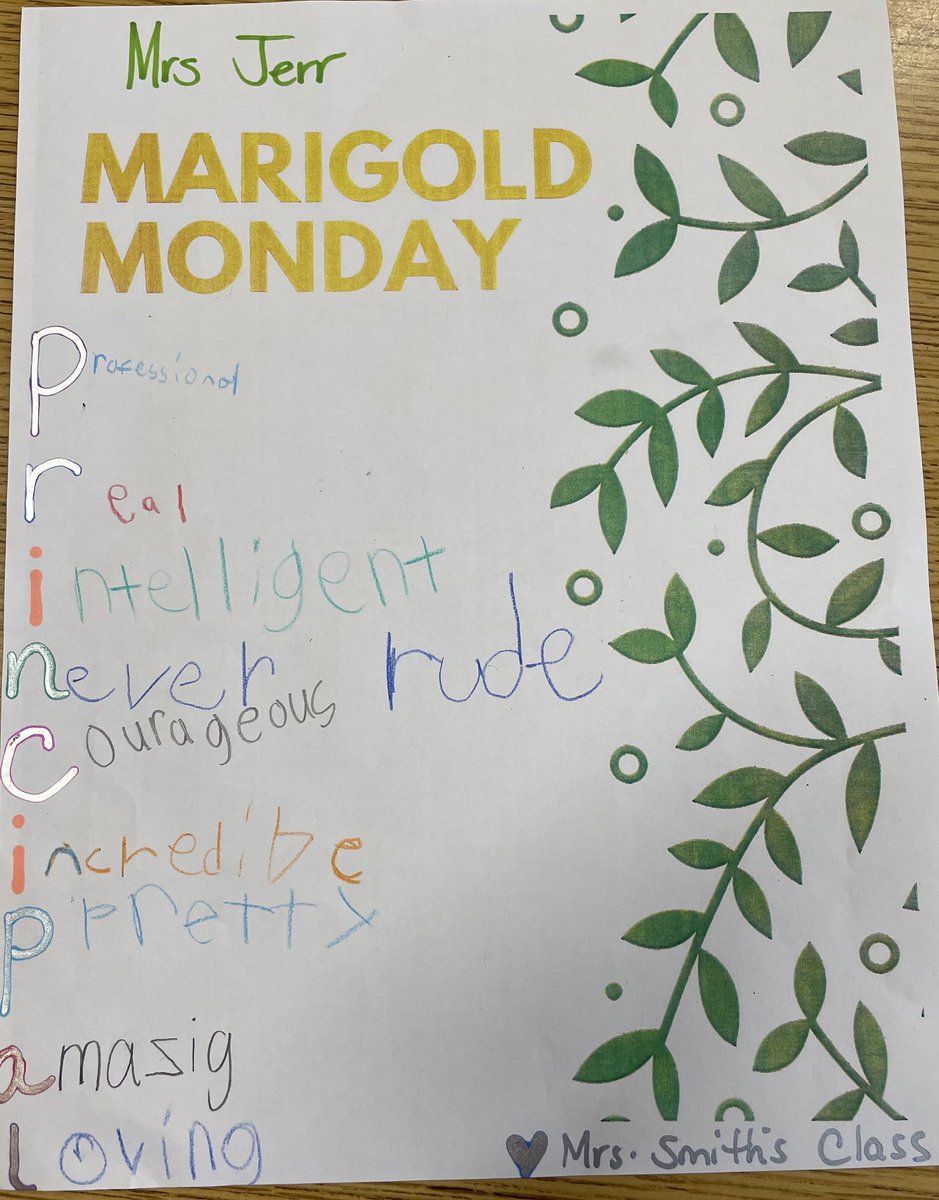 Mrs Jerr
MARIGOLD
MONDAY
Professional
real
intelligent
never rude
Courageous
incredibe
Ppretty
amazig
loving
Mrs. Smith's Class